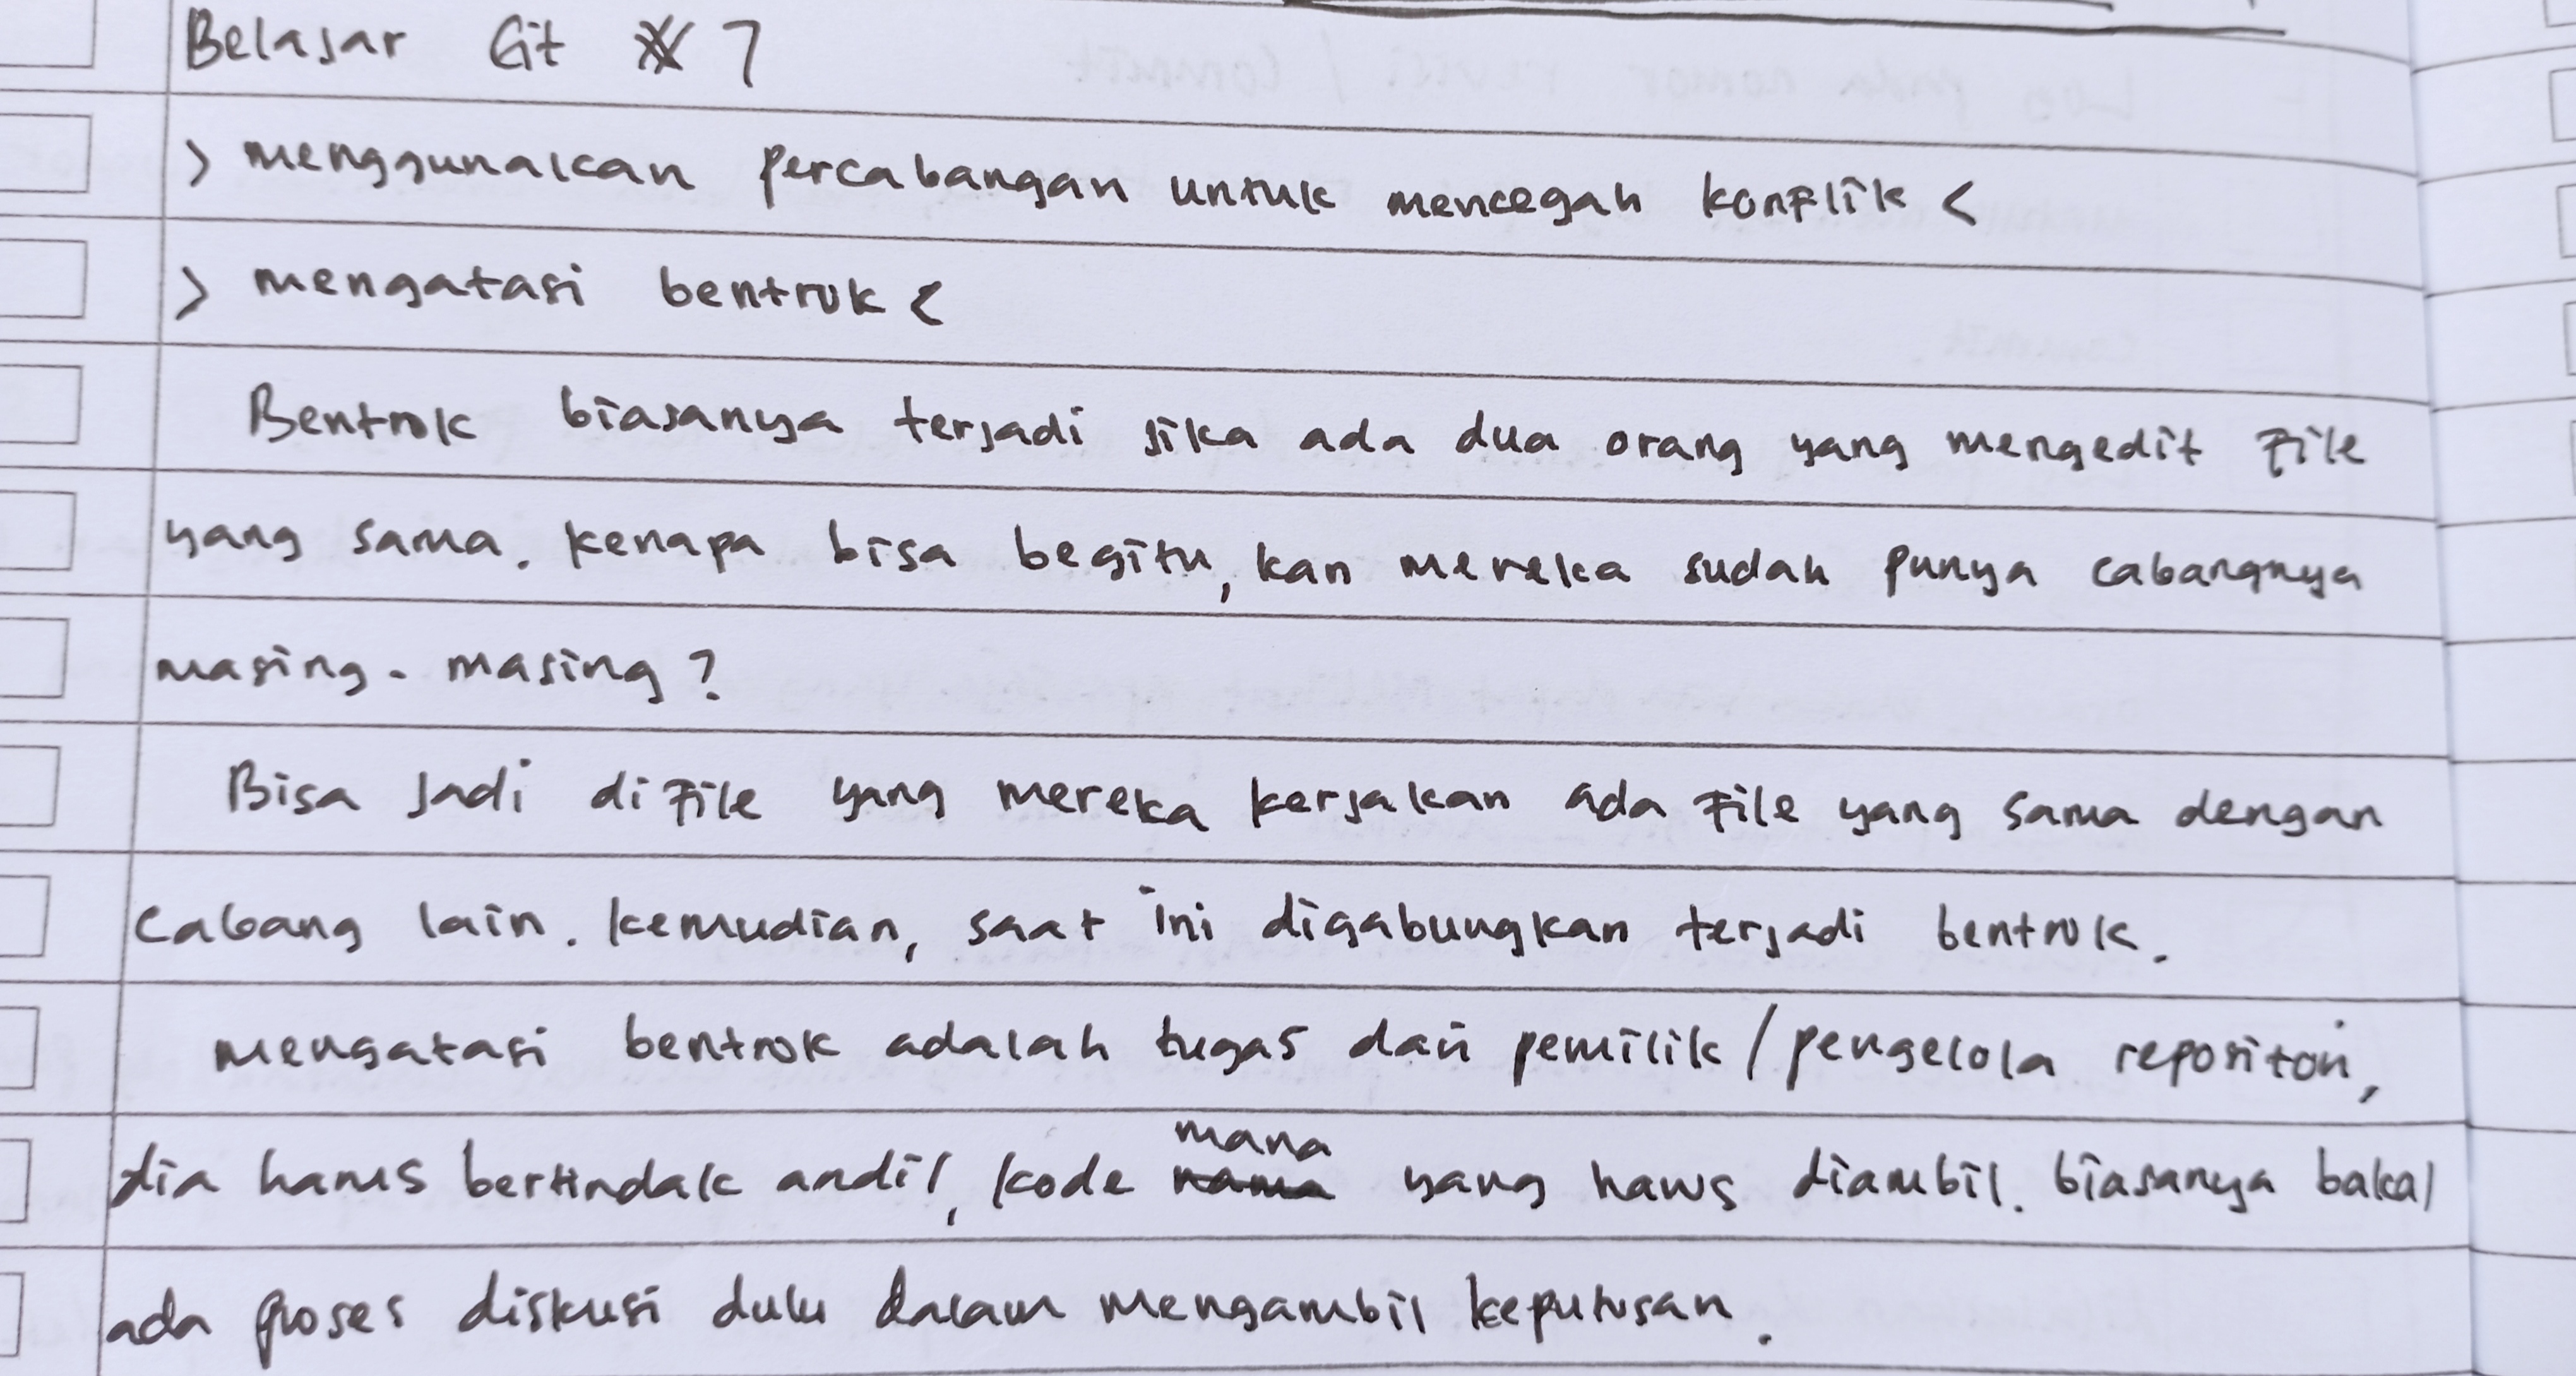 Belajar Git # 7
> menggunakan percabangan untuk mencegah konflik <
> mengatasi bentrok <
Bentrok biasanya terjadi jika ada dua orang yang mengedit file
yang sama. kenapa bisa begitu, kan mereka sudah punya cabangnya
masing-masing?
Bisa jadi di file yang mereka kerjakan ada file yang sama dengan
cabang lain. kemudian, saat ini digabungkan terjadi bentrok.
mengatasi bentrok adalah tugas dari pemilik/pengelola repositori,
dia harus bertindak andil, kode mana yang harus diambil. biasanya bakal
ada proses diskusi dulu dalam mengambil keputusan.